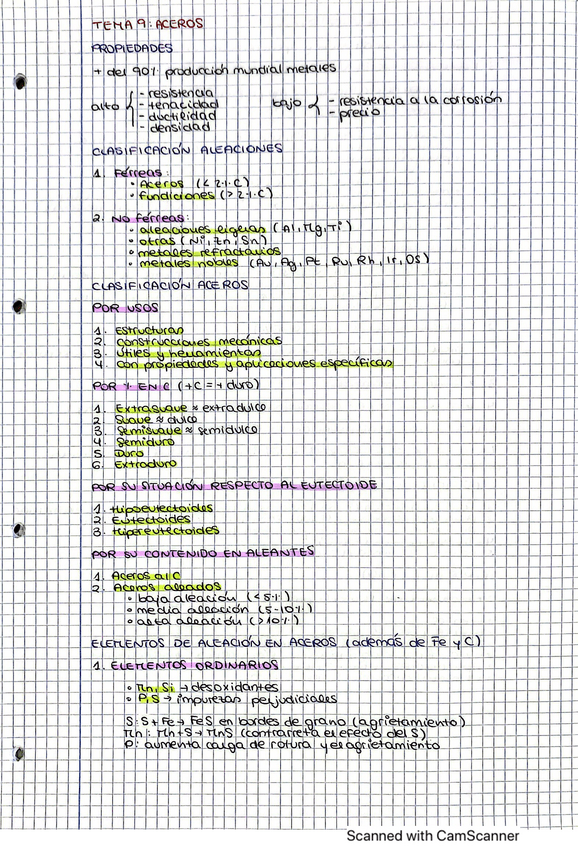 TEMA 9: ACEROS
PROPIEDADES
+ del 90% producción mundial metales
alto { - resistencia
- tenacidad
- ductilidad
- densidad
bajo { - resistencia a la corrosión
- precio
CLASIFICACIÓN ALEACIONES
1. Férreas:
• Aceros (< 2% C)
• fundiciones (> 2% C)
2. No férreas:
• aleaciones ligeras (Al, Mg, Ti)
• otras (Ni, Zn, Sn)
• metales refractarios
• metales nobles (Au, Ag, Pt, Ru, Rh, Ir, Os)
CLASIFICACIÓN ACEROS
POR USOS
1. Estructuras
2. Construcciones mecánicas
3. Útiles y herramientas
4. Con propiedades y aplicaciones específicas
POR % EN C (+C = + duro)
1. Extrasuave ≈ extradulce
2. Suave ≈ dulce
3. Semisuave ≈ semidulce
4. Semiduro
5. Duro
6. Extraduro
POR SU SITUACIÓN RESPECTO AL EUTECTOIDE
1. Hipoeutectoides
2. Eutectoides
3. Hipereutectoides
POR SU CONTENIDO EN ALEANTES
1. Aceros al C
2. Aceros aleados
• baja aleación (< 5%)
• media aleación (5-10%)
• alta aleación (> 10%)
ELEMENTOS DE ALEACIÓN EN ACEROS (además de Fe y C)
1. ELEMENTOS ORDINARIOS
• Mn, Si → desoxidantes
• P, S → impurezas perjudiciales
S: S + Fe → FeS en bordes de grano (agrietamiento)
Mn: Mn + S → MnS (contrarresta el efecto del S)
P: aumenta carga de rotura y el agrietamiento
Scanned with CamScanner